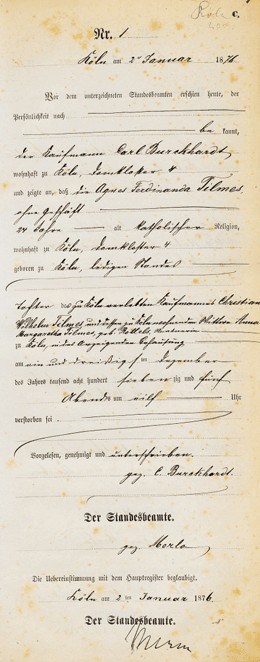 C.
Nr. 1
Köln am 2ten Januar 1876
Vor dem unterzeichneten Standesbeamten erschien heute, der
Persönlichkeit nach
be kannt,
der Kaufmann Carl Burckhardt
wohnhaft zu Köln, Domkloster 4
und zeigte an, daß die Agnes Ferdinanda Tilmes,
ohne Geschäft
24 Jahre alt katholischer Religion,
wohnhaft zu Köln, Domkloster 4
geboren zu Köln, ledigen Standes
Tochter des zu Köln verlebten Kaufmannes Christian
Wilhelm Tilmes und dessen zu Köln wohnenden Wittwe Anna
Margaretha Tilmes, geb.
zu Köln, in des Anzeigenden Behausung
am ein und dreißigsten Dezember
des Jahres tausend acht hundert siebenzig und fünf
Abends um elf Uhr
verstorben sei
Vorgelesen, genehmigt und unterschrieben.
gez. C. Burckhardt.
Der Standesbeamte.
gez. Merlo
Die Uebereinstimmung mit dem Hauptregister beglaubigt.
Köln am 2ten Januar 1876.
Der Standesbeamte.